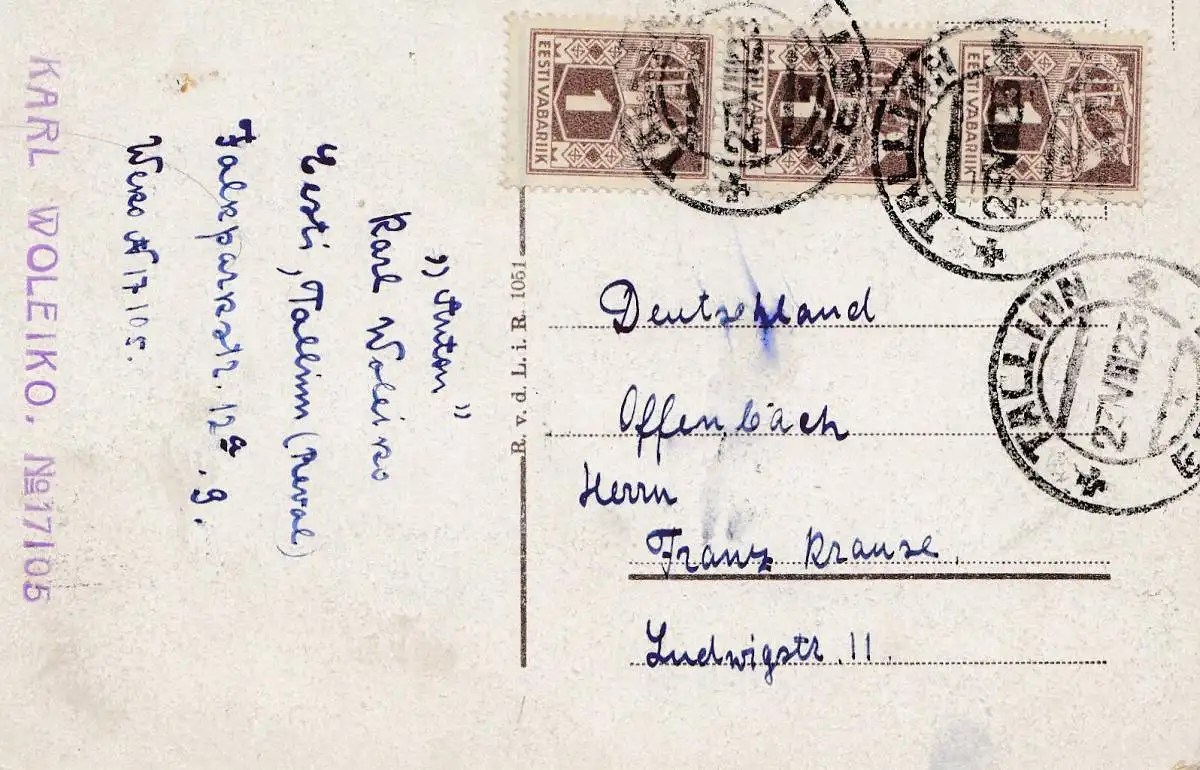 KARL WOLEIKO. No 17105
"Anton"
Karl Woleiko
Eesti, Tallinn (Reval)
Falkparkstr. 12a, 9.
Weko N 17105.
R. v. d. L. i. R. 1051
EESTI VABARIIK
1
EESTI VABARIIK
1
EESTI VABARIIK
1
TALLINN
EESTI
27 VIII 23
TALLINN
27 VIII 23
TALLINN
27 VIII 23
Deutschland
Offenbach
Herrn
Franz Krause.
Ludwigstr. 11.